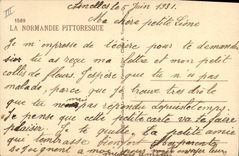 III
1589
LA NORMANDIE PITTORESQUE
le 5 Juin 1921.
Ma chère petite
Je m'empresse de t'écrire pour te demander
si tu as reçu ma lettre et mon petit
colis de fleurs J'espère que tu n'es pas
malade, parce que je trouve très drôle
que tu n'as pas répondu depuis
Je pense que cette petite carte va te faire
plaisir. Je te quitte. La petite amie
qui t'embrasse bien fort.
se joignent à moi